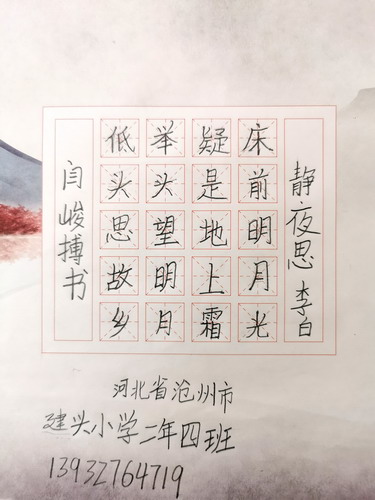 静夜思 李白
床前明月光
疑是地上霜
举头望明月
低头思故乡
闫峻搏书
河北省沧州市
建头小学二年四班
13932764719